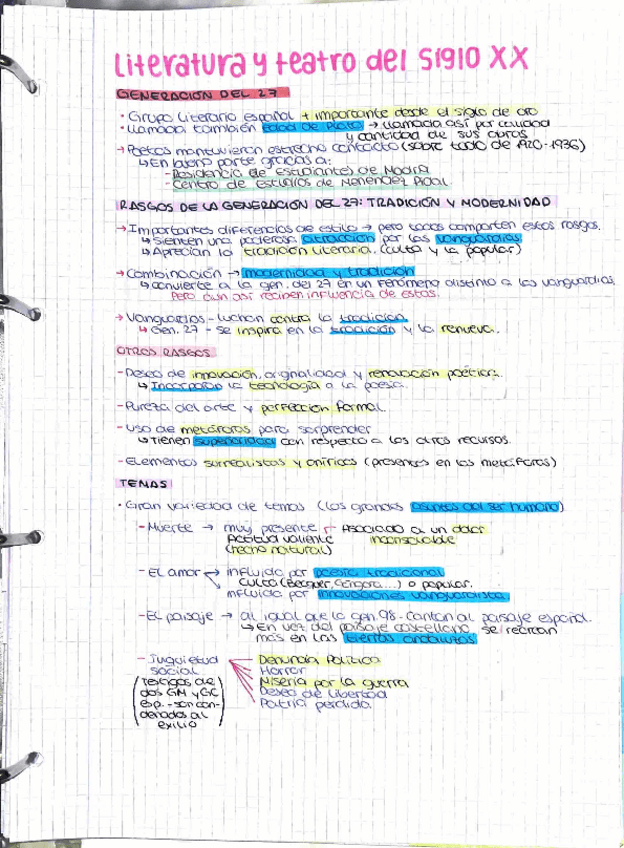 Literatura y teatro del siglo XX
GENERACIÓN DEL 27
· Grupo literario español + importante desde el siglo de oro
· Llamada también edad de Plata → llamada así por calidad
y cantidad de sus obras
→ Poetas mantuvieron estrecho contacto (sobre todo de 1920-1936)
↳ En buena parte gracias a:
- Residencia de estudiantes de Madrid
- Centro de estudios de Menéndez Pidal.
RASGOS DE LA GENERACIÓN DEL 27: TRADICIÓN Y MODERNIDAD
→ Importantes diferencias de estilo → pero todos comparten estos rasgos.
↳ Sienten una poderosa atracción por las vanguardias
↳ Aprecian la tradición literaria. (culta y la popular)
→ Combinación → modernidad y tradición
↳ convierte a la gen. del 27 en un fenómeno distinto a las vanguardias.
Pero aun así reciben influencia de estas.
→ Vanguardias - luchan contra la tradición
↳ Gen. 27 - se inspira en la tradición y la renueva.
OTROS RASGOS
- Deseo de innovación, originalidad y renovación poética.
↳ Incorporan la tecnología a la poesía.
- Pureza del arte y perfección formal.
- Uso de metáforas para sorprender
↳ tienen superioridad con respecto a los otros recursos.
- Elementos surrealistas y oníricos (presentes en las metáforas)
TEMAS
· Gran variedad de temas (los grandes asuntos del ser humano)
- Muerte → muy presente Asociado a un dolor
Actitud valiente inconsolable
(hecho natural)
- El amor influido por poesía tradicional
culta (Becquer, Góngora...) o popular.
influido por innovaciones vanguardista
- El paisaje → al igual que la gen. 98 - cantan al paisaje español.
↳ En vez del paisaje castellano, se recrean
más en las tierras andaluzas
- Inquietud Denuncia Política
social Horror
(testigos de Miseria por la guerra
dos GM y GC Deseo de libertad
esp. - son con- Patria perdida.
denados al
exilio)